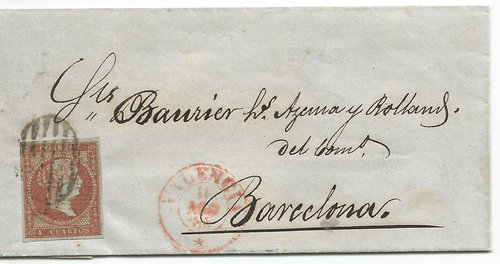 Sres
" Baurier hs. Azema y Rolland.
del Comº.
Barcelona.
VALENCIA
4 CUARTOS